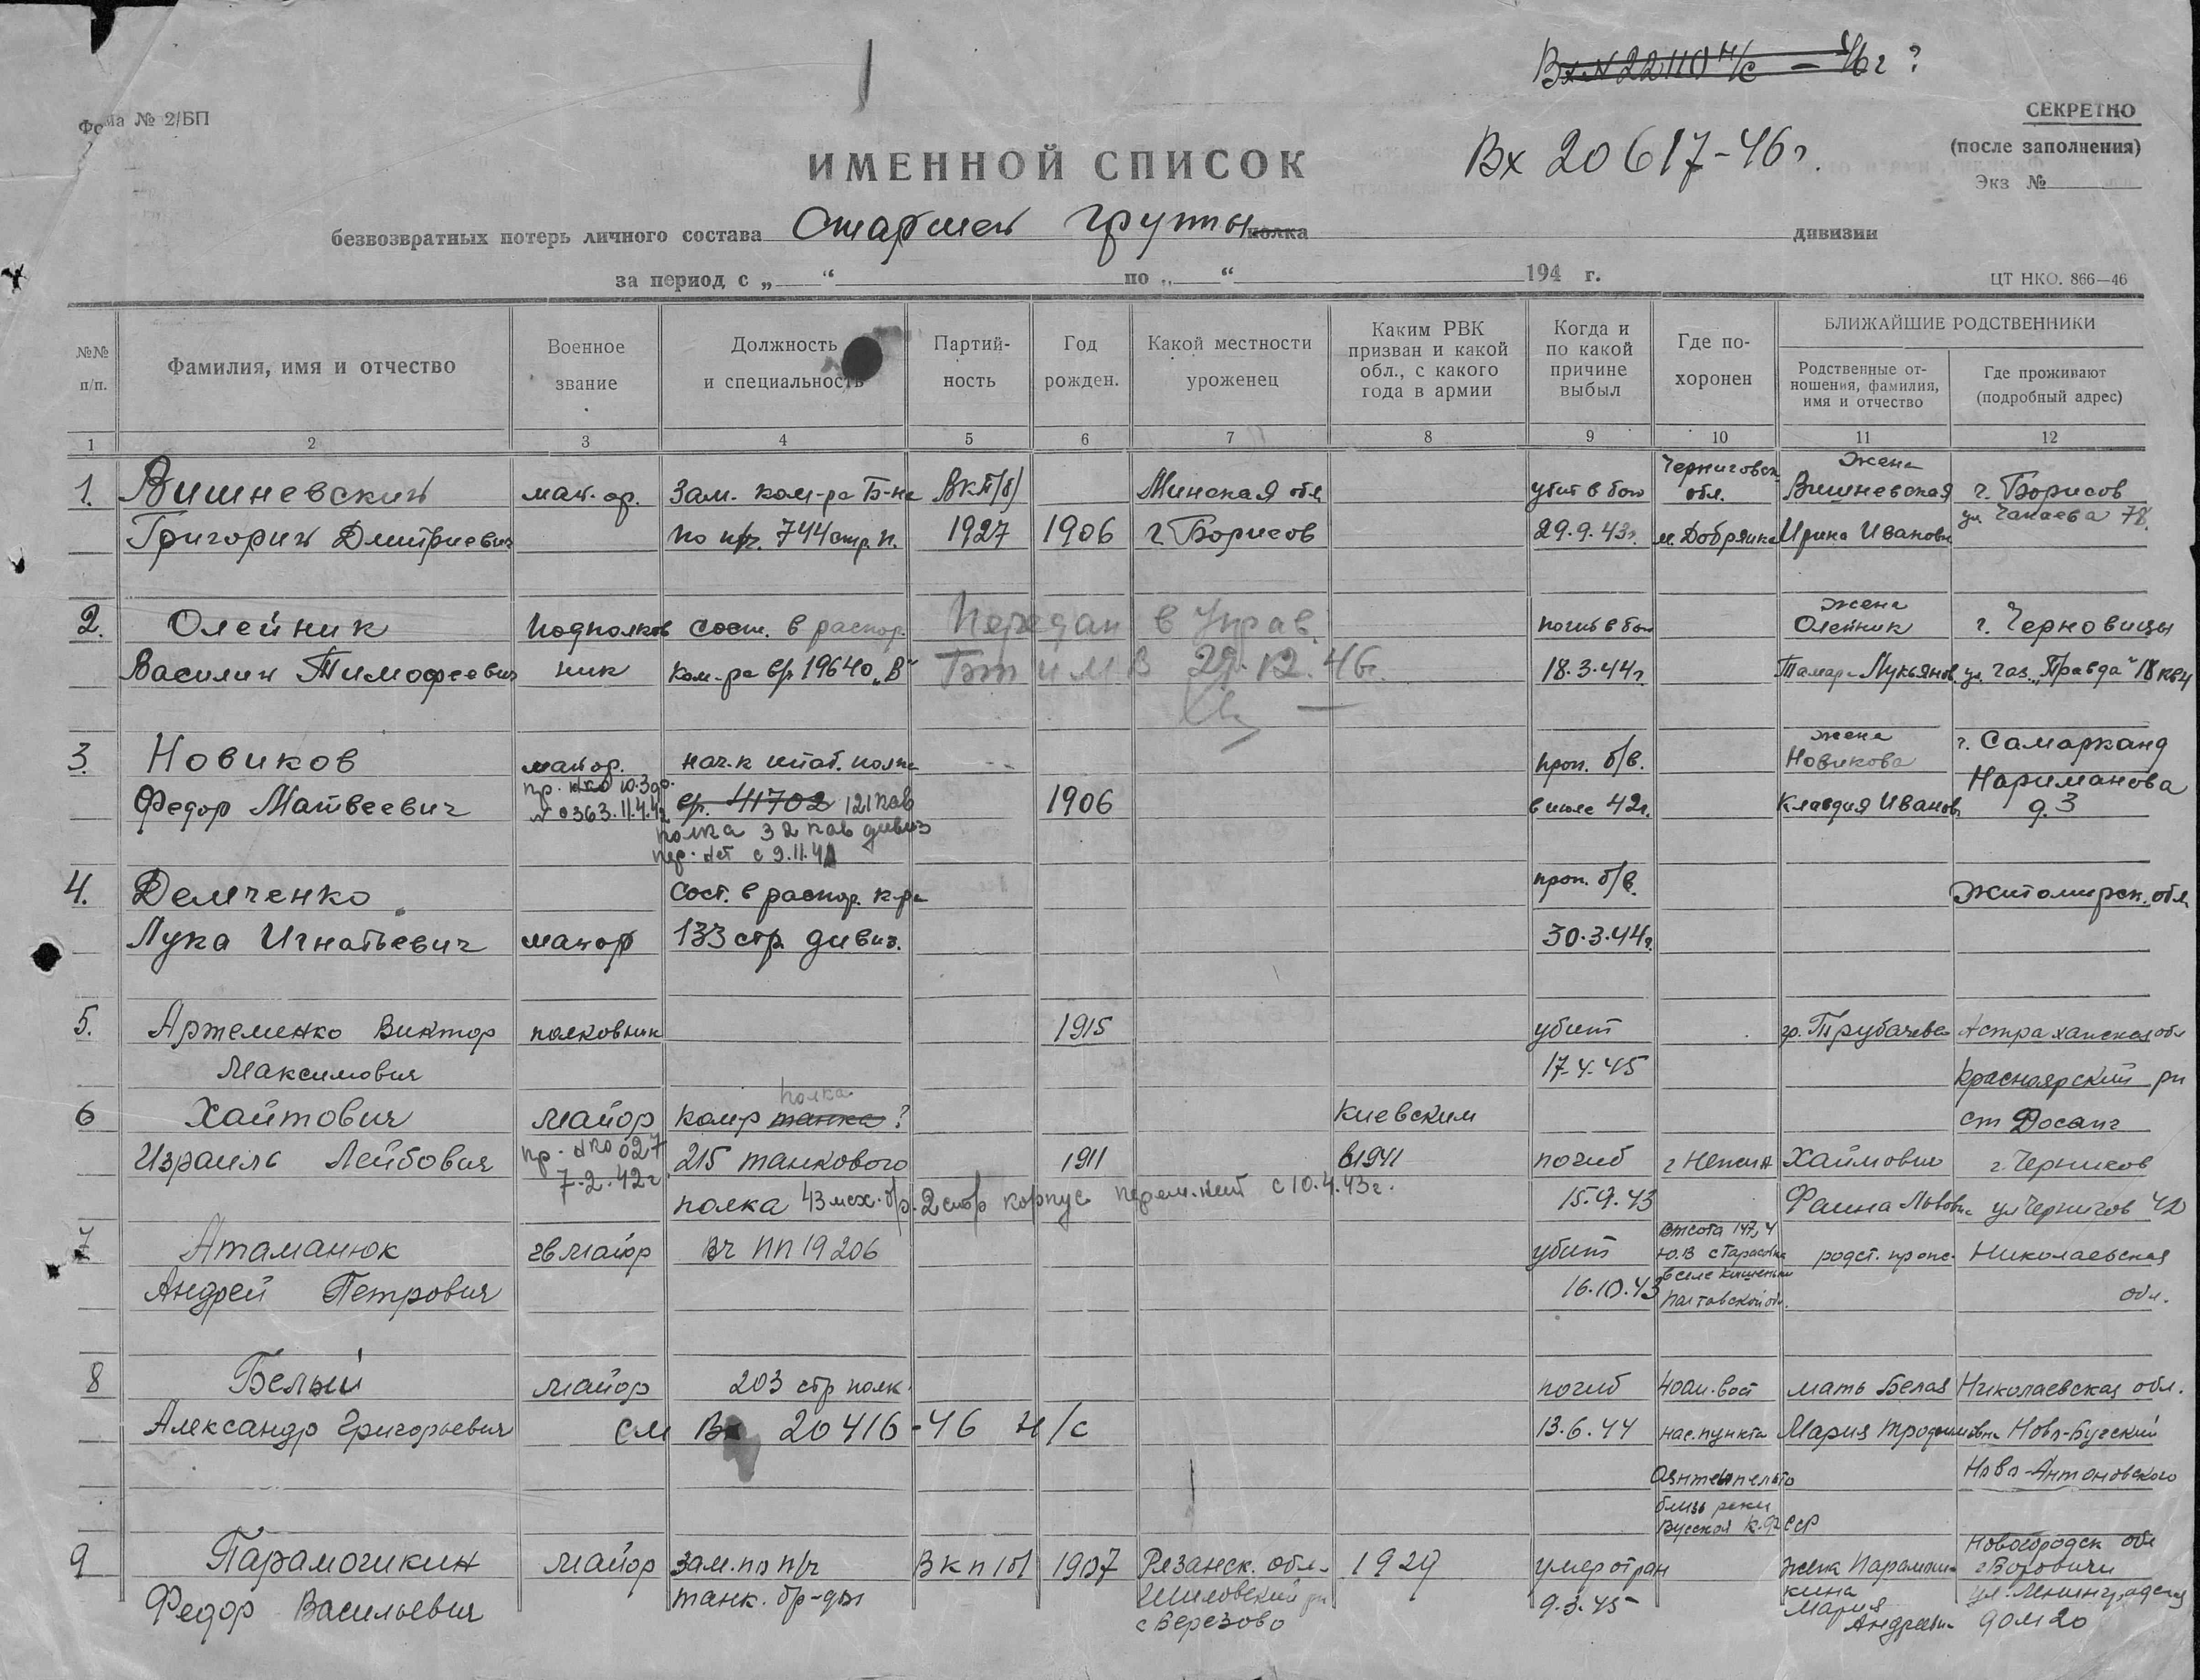 Вх № 22110 н/с – 46 г ?
Форма № 2/БП
СЕКРЕТНО
(после заполнения)
Вх 20617-46 г.
Экз №
ИМЕННОЙ СПИСОК
безвозвратных потерь личного состава Старшей группы полка дивизии
за период с „ “ по „ “ 194 г.
ЦТ НКО. 866—46
№№ п/п.
Фамилия, имя и отчество
Военное звание
Должность и специальность
Партийность
Год рожден.
Какой местности уроженец
Каким РВК призван и какой обл., с какого года в армии
Когда и по какой причине выбыл
Где похоронен
БЛИЖАЙШИЕ РОДСТВЕННИКИ
Родственные отношения, фамилия, имя и отчество
Где проживают (подробный адрес)
1 2 3 4 5 6 7 8 9 10 11 12
Черниговск. жена
1. Вишневский май-ор. Зам. ком-ра Б-на ВКП(б) Минская обл убит в бою обл. Вишневская г. Борисов
ул. Чапаева 78.
Григорий Дмитриевич по п/ч. 744 стр. п. 1927 1906 г. Борисов 29.9.43г. м. Добрянка Ирина Ивановн
жена
2. Олейник Подполков сост. в распор. Передан в Управ. погиб в бою Олейник г. Черновицы
Василий Тимофеевич ник ком-ра вр 19640 „В“ Бт и МВ 29.12.46г. 18.3.44г. Тамара Лукьянов. ул. газ. „Правда“ 18 кв4
жена
3. Новиков майор. нач-к штаб. полка проп. б/в. Новикова г. Самарканд
пр. НКО ю.з.ф. Нариманова
Федор Матвеевич № 0363. 11.4.42 вр. 41702 121 кав 1906 в июле 42г. Клавдия Иванов д.3
полка 32 кав дивиз
с 9.11.41
4. Демченко Сост. в распор. к-ра проп. б/в. Житомирск. обл
Лука Игнатьевич майор 133 стр. дивиз. 30.3.44г.
5. Артеменко Виктор полковник 1915 убит гр. Трубачева Астраханская обл
Максимович 17.4.45 Красноярский рн
полка
6 Хаймович Майор комр танка ? Киевским ст Досанг
Израиль Лейбович пр. НКО 027 215 танкового 1911 в 1941 погиб г Нежин Хаймович г. Чернигов
7.2.42г
полка 43 мех. бр. 2 корпус с 10.4.43г. 15.9.43 Фаина Львовн ул Чернигов 42
высота 147,4
7 Атаманюк гв Майор Вч пп 19206 убит Ю.В с Тарасовка родст. Николаевская
в селе Кишеньки
Андрей Петрович 16.10.43 Полтавской обл. обл.
8 Белый Майор 203 стр полк погиб 400 м. вост мать Белая Николаевская обл.
Александр Григорьевич см Вх 20416-46 н/с 13.6.44 нас. пункта Мария Трофимовна Ново-Бугский
Ново-Антоновского
близь реки
ССР
Новогородск обл
9 Парамошкин Майор Зам. по п/ч ВКП(б) 1907 Рязанск. обл. 1929 умер от ран жена Парамош- г Боровичи
Федор Васильевич танк. бр-ды Шиловский рн 9.3.45 кина ул. Ленинградская
с Березово Мария Андреевн дом 20